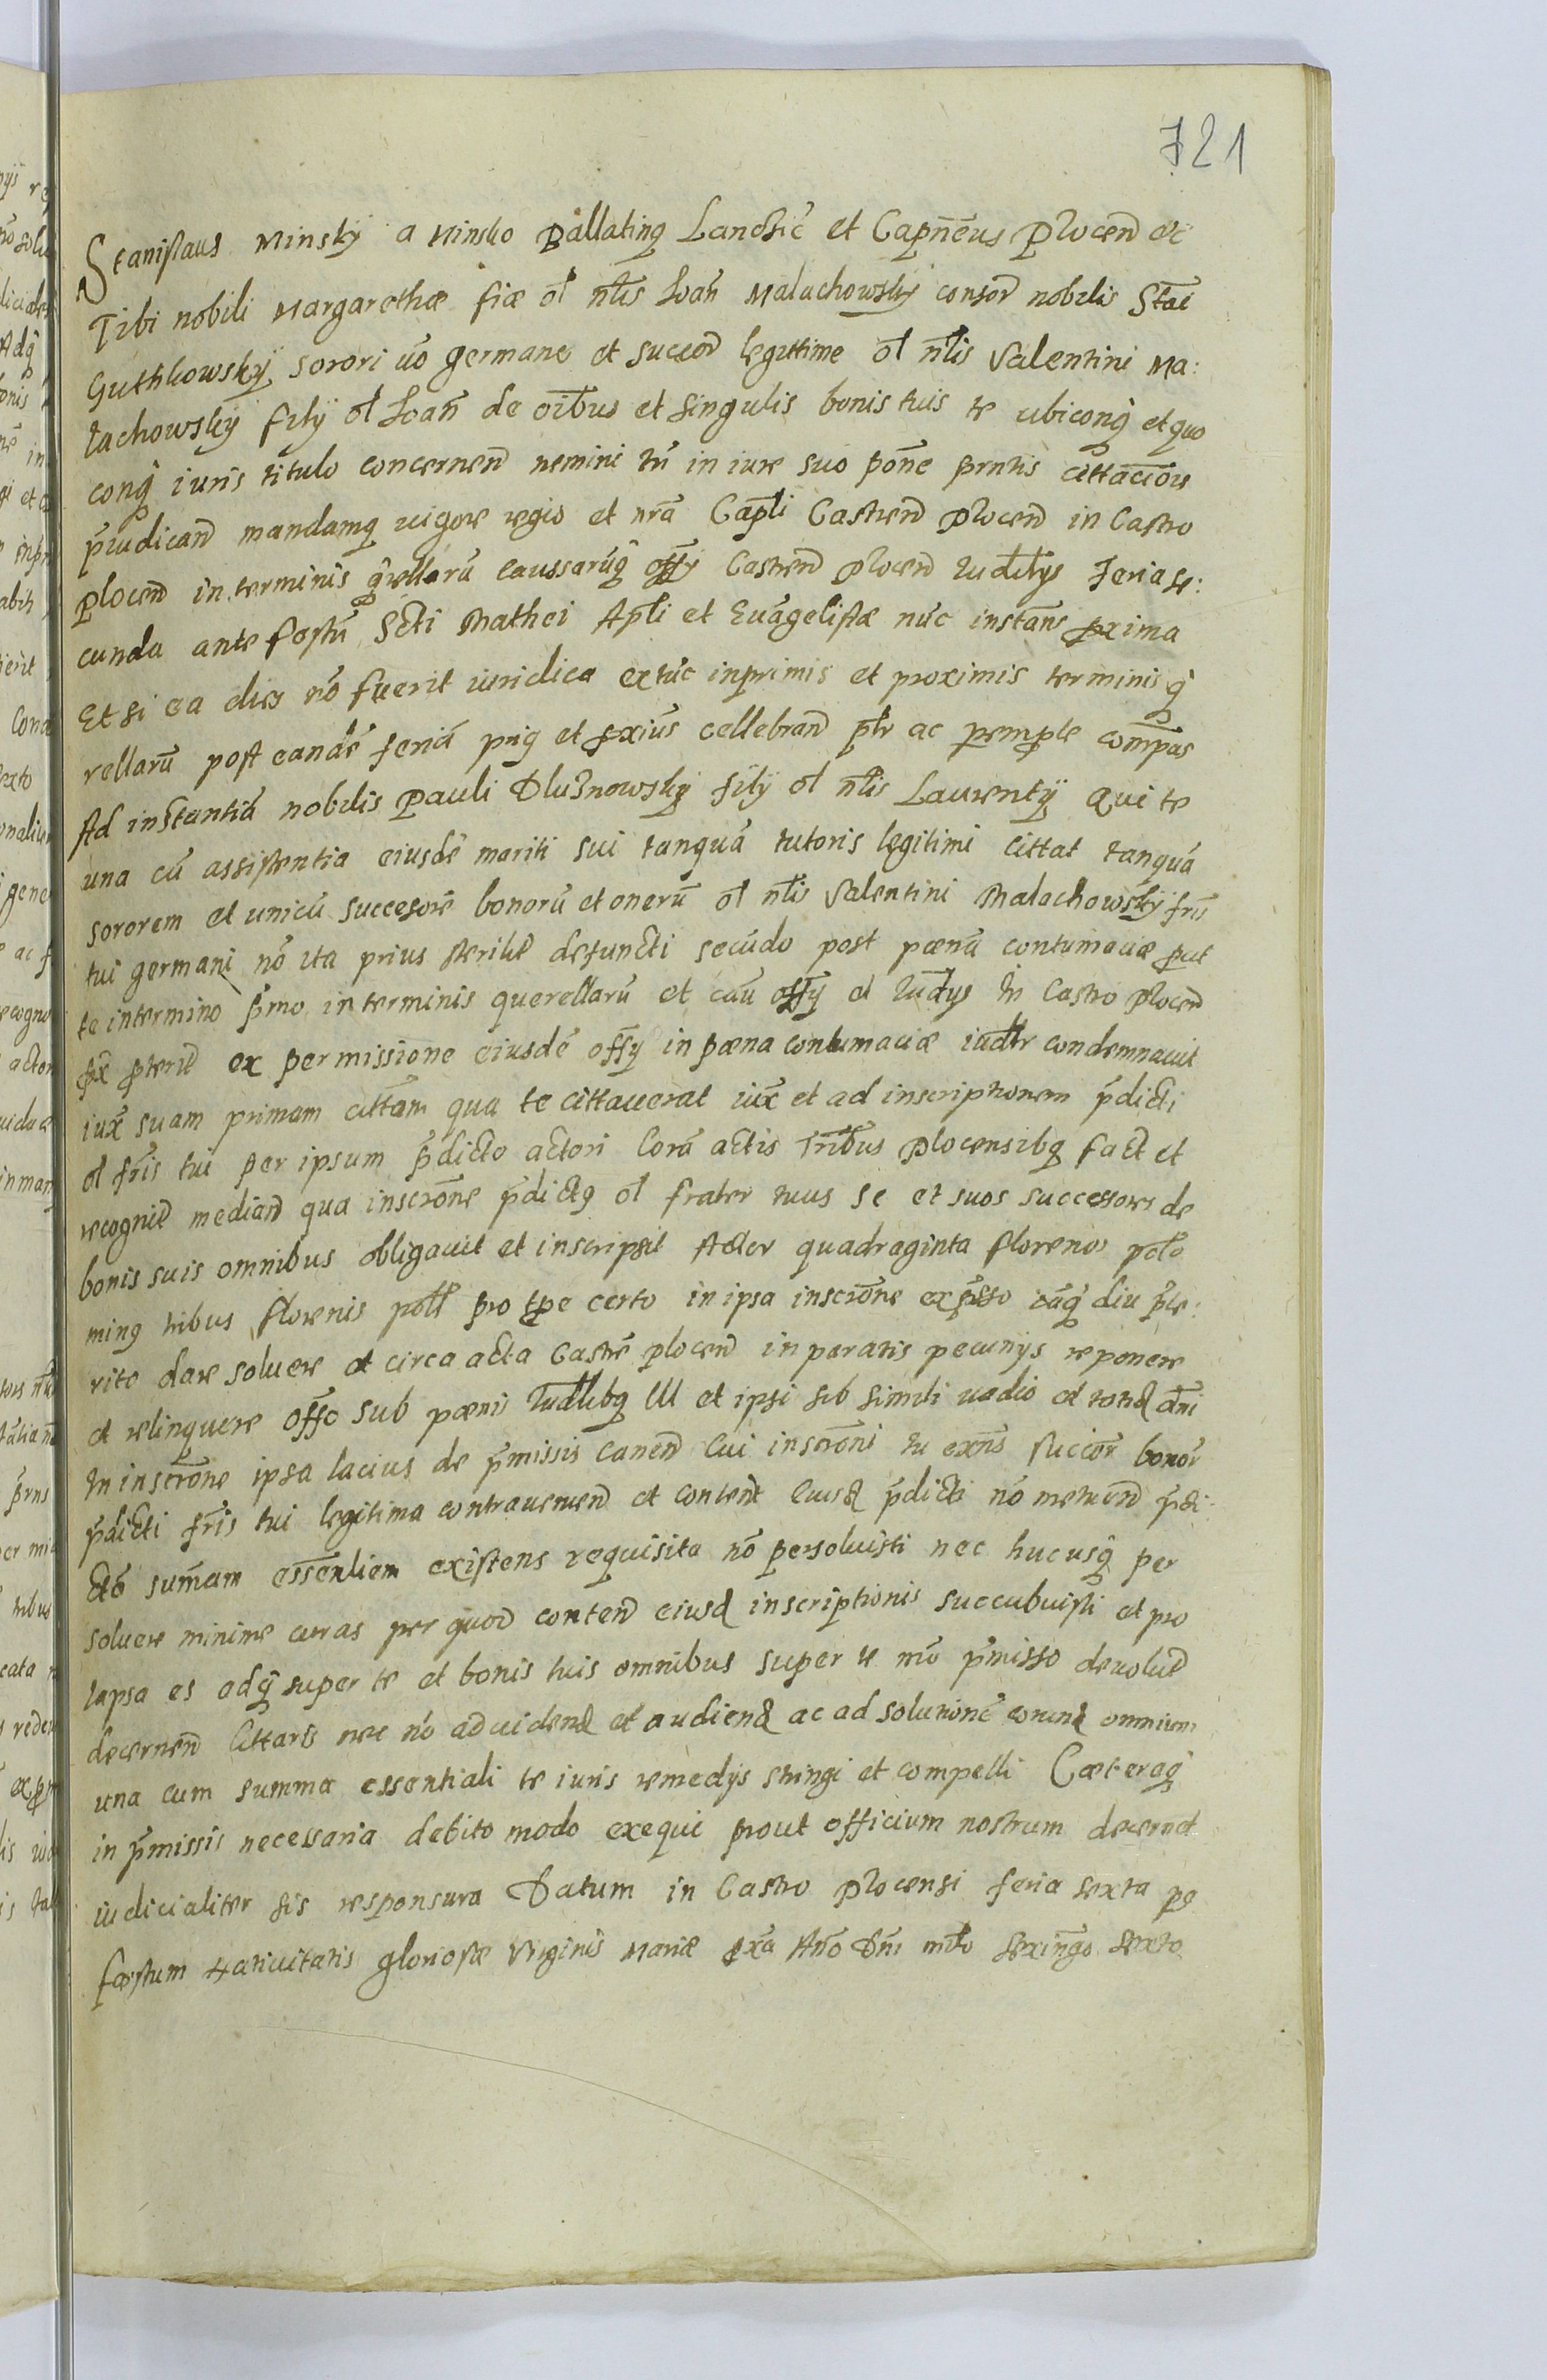 721
Stanislaus Minsky a Minsko Pallatinꝫ Lanchic̃ et Capñeus Plocen̄ etc̄
Tibi nobili Margarethæ fiæ ol̄ nl̄is Ioan̄ Malachowsky consor̄ nobilis Stāi
Guthkowsky sorori v̄o germane et succor̄ legittime ol̄ nl̄is Valentini Ma:
lachowsky filij ol̄ Ioan̄ de oībus et singulis bonis tuis te ubiconqꝫ et quo
conqꝫ iuris titulo concernen̄ nemini tn̄ in iure suo pōne pr̄ntis cittāciōis
p̄iudican̄ mandamꝫ vigore regio et nr̄a Capl̄i Castren̄ plocen̄ in Castro
plocen̄ in terminis qr̄ellarū caussarūqꝫ offij Castren̄ plocen̄ Iudl̄ijs Feria se:
cunda ante festū Scti Mathei Apl̄i et Evāgelistæ nūc instan̄s ꝓxima
Et si ea dies nō fuerit iuridica extūc inprimis et proximis terminis q̄
rellarū post eandē feriā pn̄g et ꝓxiūs cellebran̄ pl̄r ac peremp̄te com̄pas
Ad instantiā nobilis Pauli Dluznowsky filij ol̄ nl̄is Laurentij Qui te
una cū assistentia eiusdē mariti sui tanquā tutoris legitimi cittat tanquā
sororem et unicū succesorē bonorū et onerū ol̄ nl̄is Valentini Malachowsky fr̄is
tui germani nō ita prius sterilr̄ defuncti secūdo post pænā contumaciæ ꝓut
te in termino p̄mo in terminis querellarū et cāū offij et Iudl̄ijs In Castro plocen̄
ꝓx̄ p̄terit̄ ex permissione eiusdē offij in pæna contumaciæ iudl̄r condemnavit
iux̄ suam primam cittām qua te cittaverat iux̄ et ad inscriptionem p̄dicti
ol̄ fr̄is tui per ipsum p̄dicto actori Corā actis Tr̄ibus Plocensibꝫ fact et
recognit̄ median̄ qua inscrōne p̄dictꝫ ol̄ frater tuus se et suos successores de
bonis suis omnibus obligavit et inscripsit Actor quadraginta florenos polo
minꝫ tribus florenis poll̄ pro tp̄e certo in ipsa inscrōne exp̄sso iāqꝫ diu p̄te:
rito dare solvere et circa acta Castrē plocen̄ in paratis pecunijs reponere
et relinquere offo sub pænis Iudl̄ibꝫ lll et ipsi sub simili vadio et totid̄ dn̄i
In inscrōne ipsa lacius de p̄missis canen̄ Cui inscrōni tu exn̄s succor̄ bonor̄
p̄dicti fr̄is tui legitima contravenien̄ et content̄ eiusd̄ p̄dicti nō metuen̄ p̄di:
ctā sum̄am essenliem existens requisita nō persoluisti nec hucusqꝫ per
solvere minime curas per quod conten̄ eiusd̄ inscriptionis succubuisti et pro
lapsa es adqꝫ super te et bonis tuis omnibus super te mō p̄misso devolut̄
decernen̄ Cittaris nec nō ad videnđ et audienđ ac ad solutionē eorund̄ omnium
una cum summa essentiali te iuris remedijs stringi et compelli Cæteraqꝫ
in p̄missis necessaria debito modo exequi prout officium nostrum decernet
iudicialiter sis responsura Datum in Castro plocensi feria sexta po
fæstum Nativitatis gloriosæ Virginis Mariæ ꝓxa Anō Dn̄i mll̄o sexing̃o sexto